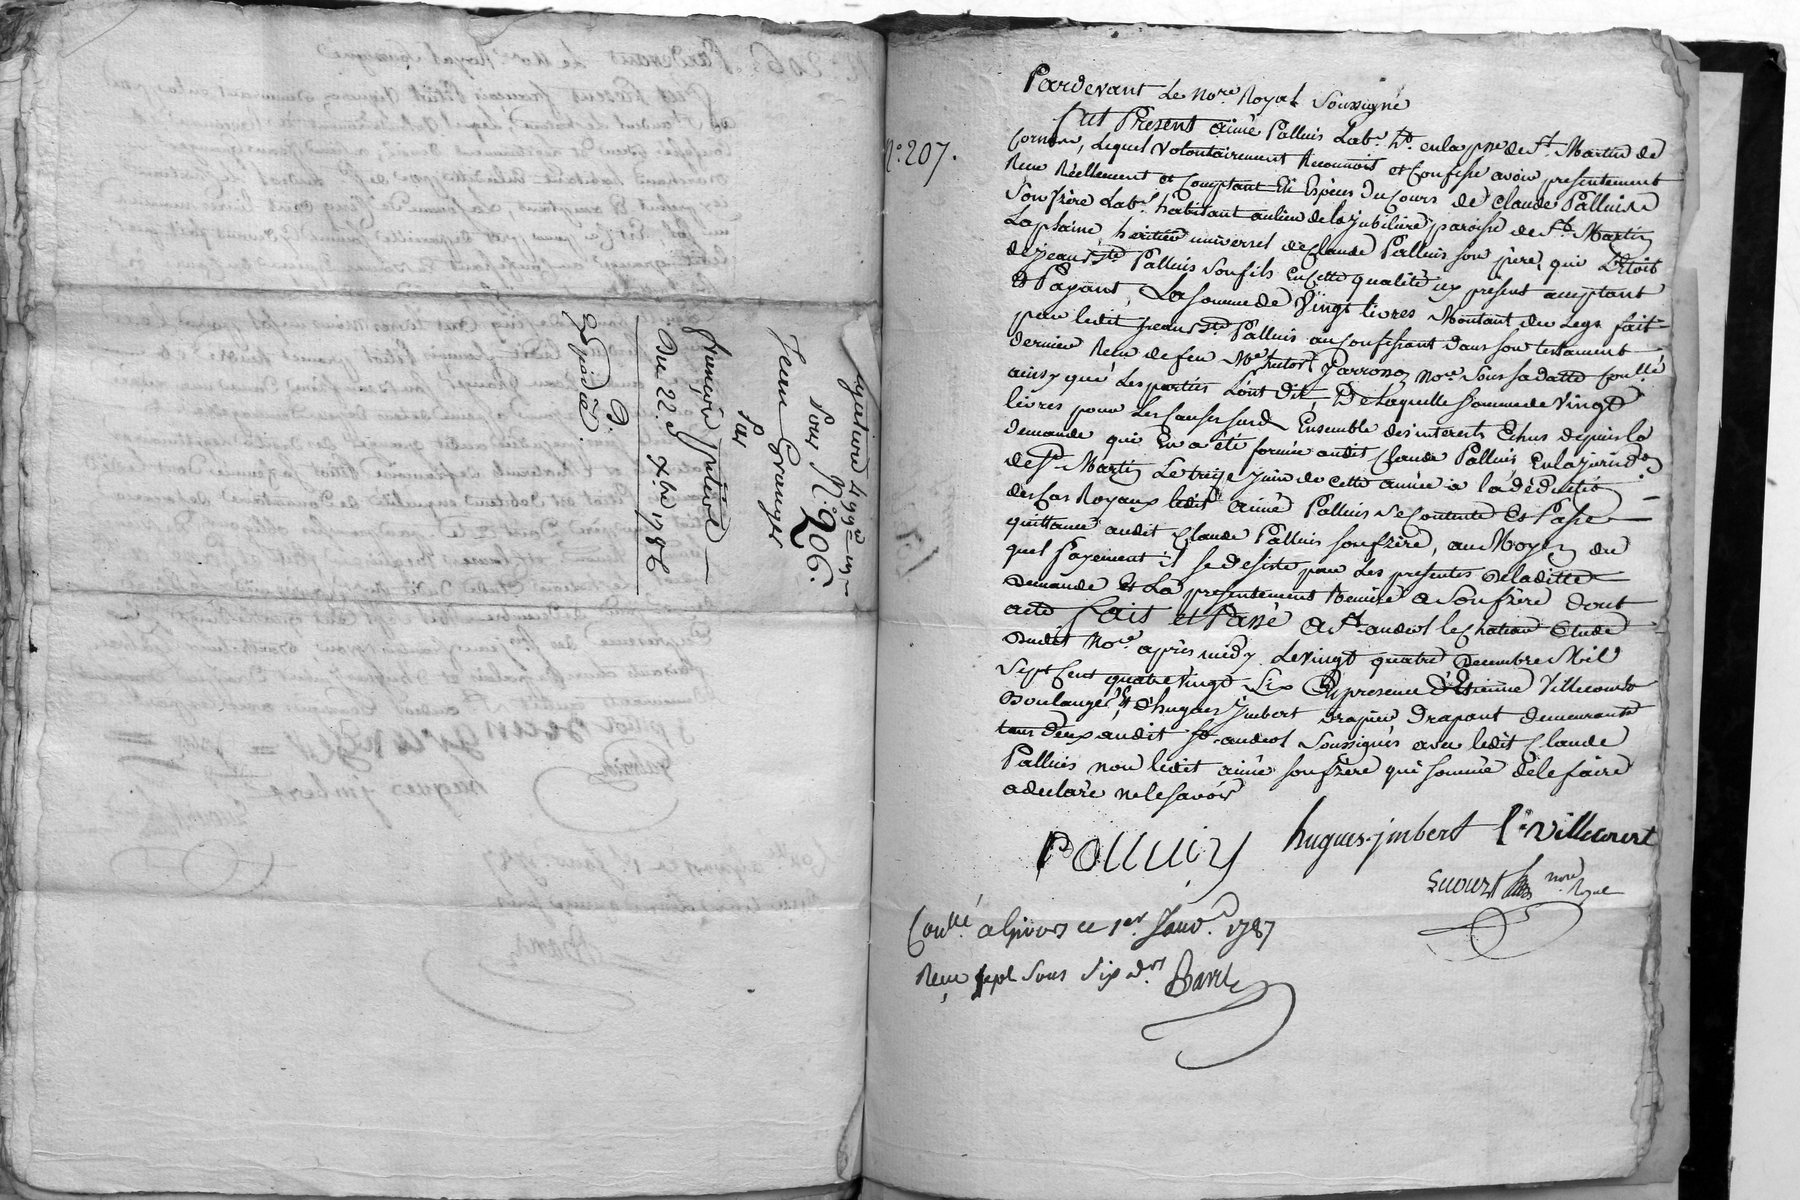 Sous N.° 206.
Jean Granger
Par
françois pitiot
Du 22. Xbre 1786
Expediée.
N.° 207.
Pardevant Le Nore. Royal Soussigné
fut Present aimé Palluis Lab.r h.t en la psse de St. Martin de
Cornas, Lequel Volontairement Reconnoit et Confesse avoir presentement
Receu Réellement et Comptant En Espéces du Cours de Claude Palluis
Son frère Lab.r habitant au lieu de la jubiliere paroisse de St. Martin
La plaine, heritier universel de Claude Palluis son père, qui L'étoit
de jean Bte Palluis son fils En Cette qualité icy present acceptant
Et Payant, La Somme de Vingt livres Montant du Legs fait
par ledit jean Bte Palluis au Confessant dans son testament
dernier Receu de feu Me Jarronoz Nore. Sous Sa datte Conllé
ainsy que Les parties L'ont dit, De Laquelle Somme de Vingt
livres pour Les Causes susd. Ensemble des interets Echus depuis la
demande qui En a été formée audit Claude Palluis En la jurid.on
de St. Martin Le treize juin de cette année à la déduction
des Cas Royaux ledit aimé Palluis Se Contente Et Passe
quittance audit Claude Palluis son frère, au Moyen du
quel Payement il se desiste par Les presentes De laditte
Demande Et La presentement Remise a Son frère dont
acte fait et Passé a St. andeol le Chateau Etude
dudit Nore. après midy Le vingt quatre Decembre Mil
Sept Cent quatre vingt Six En presence d'Etienne Villecourt
Boulanger, Et d'hugues jmbert drapier drapant demeurants
tous deux audit St. andeol Soussignés avec ledit Claude
Palluis non ledit aimé son frère qui sommé de le faire
a declaré ne le savoir
Palluiy hugues jmbert E. Villecourt
nore Royal
Conllé a Givors ce 1er. Janv.r 1787
Reçu sept sous six drs.